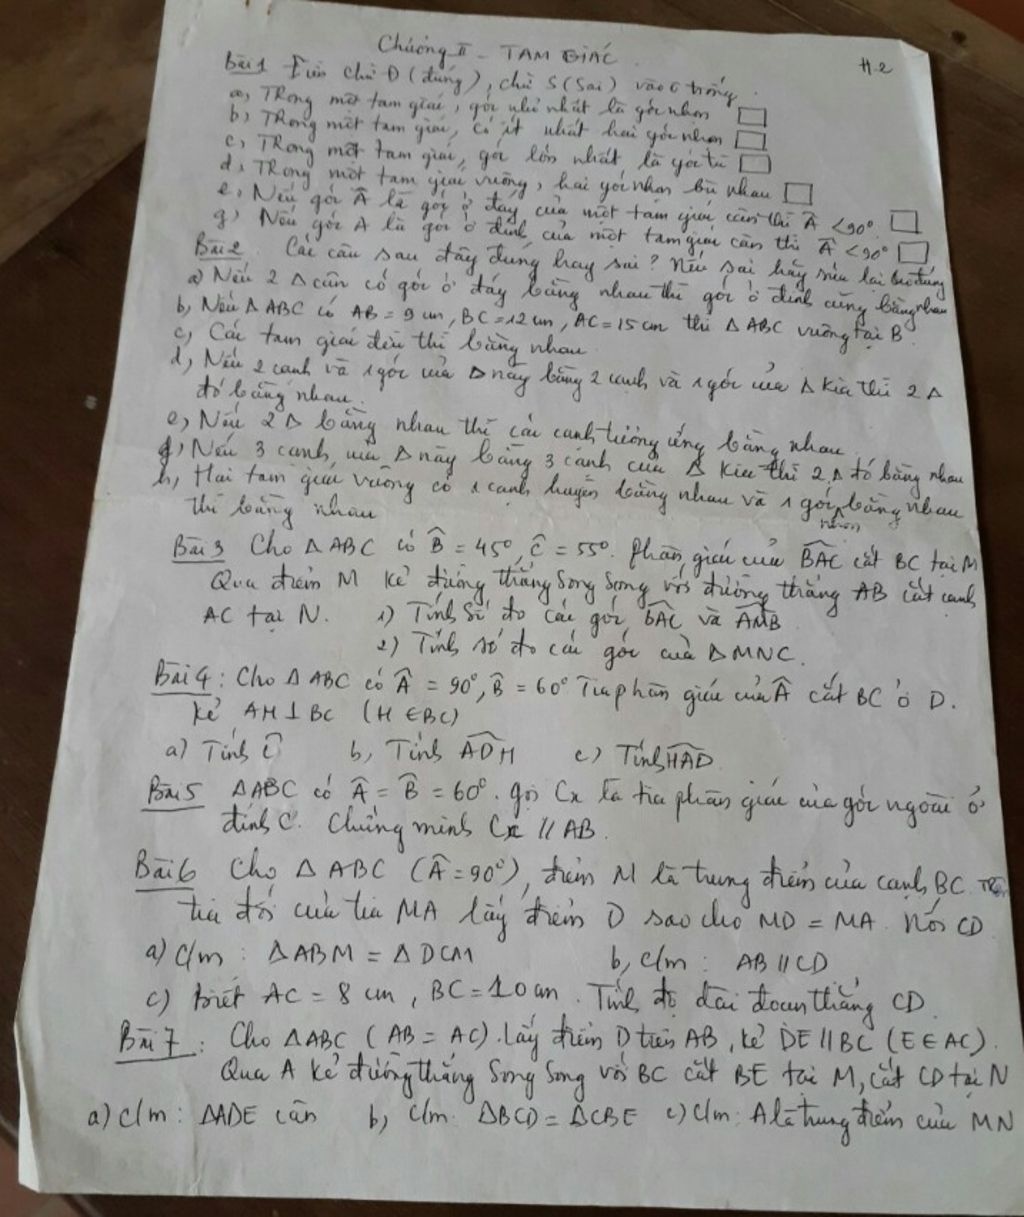 Chương II - TAM GIÁC
H.2
Bài 1 Điền chữ Đ (đúng), chữ S (Sai) vào ô trống
a, Trong một tam giác, góc nhỏ nhất là góc nhọn
b, Trong một tam giác, có ít nhất hai góc nhọn
c, Trong một tam giác, góc lớn nhất là góc tù
d, Trong một tam giác vuông, hai góc nhọn bù nhau
e, Nếu góc Â là góc ở đáy của một tam giác cân thì Â < 90°
g, Nếu góc A là góc ở đỉnh của một tam giác cân thì Â < 90°
Bài 2 Các câu sau đây đúng hay sai? Nếu sai hãy sửa lại cho đúng
a) Nếu 2 Δ cân có góc ở đáy bằng nhau thì góc ở đỉnh cũng bằng nhau
b, Nếu Δ ABC có AB = 9 cm, BC = 12 cm, AC = 15 cm thì Δ ABC vuông tại B.
c, Các tam giác đều thì bằng nhau.
d, Nếu 2 cạnh và 1 góc của Δ này bằng 2 cạnh và 1 góc của Δ kia thì 2 Δ
đó bằng nhau.
e, Nếu 2 Δ bằng nhau thì các cạnh tương ứng bằng nhau.
g, Nếu 3 cạnh của Δ này bằng 3 cạnh của Δ kia thì 2 Δ đó bằng nhau
h, Hai tam giác vuông có 1 cạnh huyền bằng nhau và 1 góc nhọn bằng nhau
thì bằng nhau
Bài 3 Cho Δ ABC có B̂ = 45°, Ĉ = 55°. Phân giác của BÂC cắt BC tại M
Qua điểm M kẻ đường thẳng song song với đường thẳng AB cắt cạnh
AC tại N. 1) Tính số đo các góc BÂC và AM̂B
2) Tính số đo các góc của ΔMNC.
Bài 4: Cho Δ ABC có Â = 90°, B̂ = 60° Tia phân giác của Â cắt BC ở D.
kẻ AH ⊥ BC (H ∈ BC)
a) Tính Ĉ b, Tính AD̂H c) Tính HÂD
Bài 5 ΔABC có Â = B̂ = 60°. gọi Cx là tia phân giác của góc ngoài ở
đỉnh C. Chứng minh Cx // AB.
Bài 6 Cho Δ ABC (Â = 90°), điểm M là trung điểm của cạnh BC. Trên
tia đối của tia MA lấy điểm D sao cho MD = MA. Nối CD
a) C/m : Δ ABM = Δ DCM b, C/m : AB // CD
c) Biết AC = 8 cm, BC = 10 cm. Tính độ dài đoạn thẳng CD.
Bài 7 : Cho ΔABC (AB = AC). Lấy điểm D trên AB, kẻ DE // BC (E ∈ AC).
Qua A kẻ đường thẳng song song với BC cắt BE tại M, cắt CD tại N
a) C/m : ΔADE cân b, C/m : ΔBCD = ΔCBE c) C/m : A là trung điểm của MN